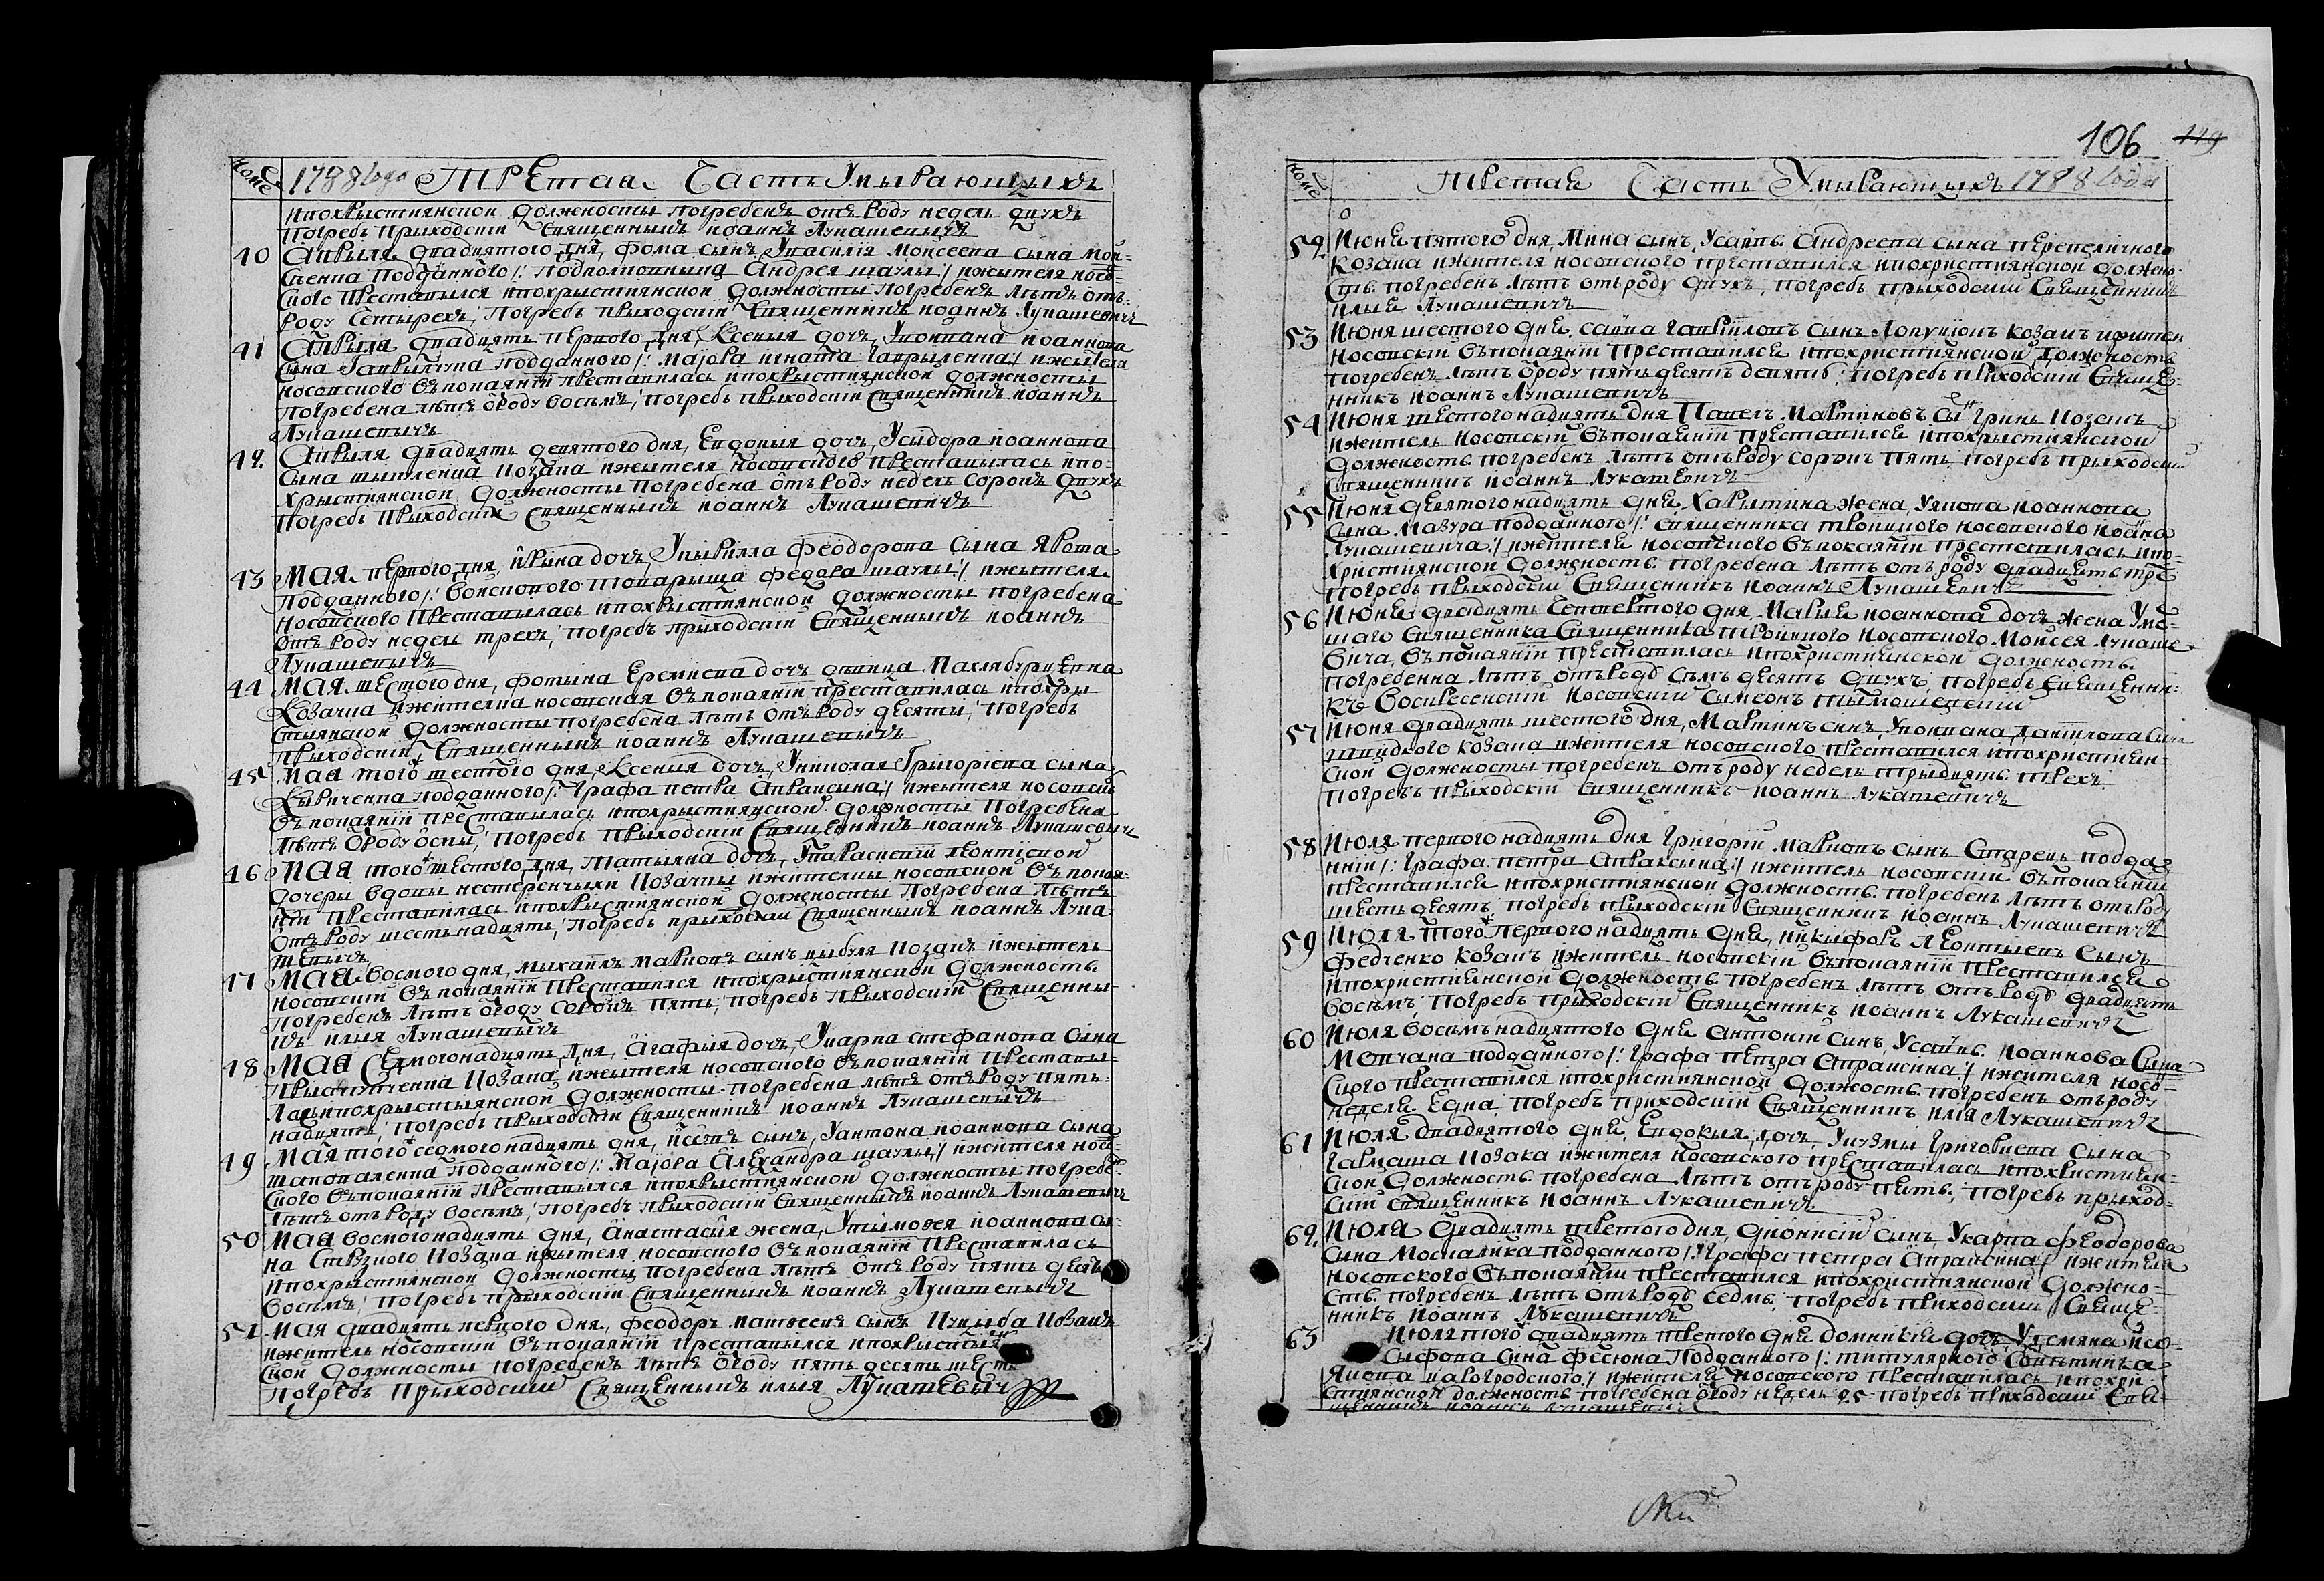 Номе 1788 года Третая Часть Умирающыхъ
ипохрыстиянскои должносты погребенъ отъ роду недель двухъ
Погребъ Прыходскiи Священныкъ иоаннъ Лукашевычъ
40 Апрыля двадцятого дня, фома сынъ, Увасилiя моисеева сына Мои-
сеенка Подданного /: Подполковныка Андрея шаулы :/ ижытеля носо-
вского Преставылся ипохрыстиянскои должносты погребенъ летъ отъ
роду Сетырехъ, Погребъ Прыходскiи Священникъ иоаннъ Лукашевичъ
41 Апрыля двадцять Первого дня, Ксения дочъ, Уконпана иоаннова
сына Гаврылчука подданного /: маiора игната Гаврыленка :/ ижытеля
носовского въпокаянiи преставилась ипохрыстиянскои должносты
погребена летъ ороду восемъ, погребъ Прыходскiи Священникъ иоаннъ
Лукашевычъ
42. Апрыля двадцять девятого дня, Евдокия дочъ, Усыдора иоаннова
Сына козака ижытеля Носовского Преставылась ипо-
хрыстиянскои должносты Погребена отъ роду недель сорокъ двухъ
погребъ Прыходскiи Священныкъ иоаннъ Лукашевичъ
43 Мая первого дня, ирына дочъ, Укырилла феодорова сына Ярота
Подданного /: Бонскового товарыща федора шаулы :/ ижытеля
носовского Преставылась ипохрыстиянскои должносты погребена
отъ роду недели трехъ, погребъ прыходскiи Священныкъ иоаннъ
Лукашевычъ
44 Мая шестого дня, фотына Еремиева дочъ девица
Козачка ижителка носовская въпокаянiи преставилась ипохры
стиянскои должносты погребена летъ отъ роду десяти, погребъ
Прыходскiи Священныкъ иоаннъ Лукашевычъ
45 Мая того шестого дня, Ксения дочъ, Униколая Григорiева сына
Кырыченка подданного /: Графа петра Апраксына :/ ижытеля носовско
въпокаянiи преставылась ипохрыстиянскои должносты Погребена
летъ ороду осмы, Погребъ Прыходскiи Священникъ иоаннъ Лукашевычъ
46 Мая того шестого дня, татьяна дочъ, Упараскевiи леонтiевои
дочеры вдовы нестеренчыхи Козачкы ижителкы носовскои въпокая-
нiи Преставилась ипохрыстиянскои должносты Погребена летъ
отъ роду шестьнадцять, Погребъ прыходскiи Священныкъ иоаннъ Лука-
шевычъ
47 Мая восмого дня, мыхаилъ марковъ сынъ цыбуля Козакъ ижытель
носовскiи въпокаянiи Преставился ипохрыстиянскои должность.
погребенъ летъ ороду сорокъ пять, погребъ прыходскiи Священны-
къ илия Лукашевычъ
48 Мая Седмогонадцять дня, Агафия дочъ, Укарпа стефанова сына
Прыступченка Козака ижытеля носовского въпокаянiи Преставы-
лась ипохрыстыянскои должносты погребена летъ отъ роду пять-
надцять, погребъ прыходскiи Священникъ иоаннъ Лукашевычъ
49 Мая того седмогонадцять дня, сынъ, Уантона иоаннова сына
шаповаленка подданного /: маiора Александра шаулы :/ ижытеля носо-
вского въпокаянiи Преставылся ипохрыстиянскои должносты погребе
летъ отъ роду восемъ, погребъ прыходскiи Священныкъ иоаннъ Лукашевычъ
50 Мая восмогонадцять дня, Анастасия жена, Утымофея иоаннова сы-
на Козака ижытеля носовского въпокаянiи Преставилась
ипохрыстиянскои должносты Погребена летъ отъ роду пять десятъ
восемъ, погребъ прыходскiи Священныкъ иоаннъ Лукашевычъ
51 Мая двадцять первого дня, феодоръ матвеевъ сынъ Куцыба Козакъ
ижытель носовскiи въпокаянiи преставылся ипохрыстия
скои должносты погребенъ летъ ороду пять десять шесть
погребъ Прыходскiи Священныкъ илыя Лукашевычъ
106 119
Номе Третая Часть Умирающихъ 1788 года
52. Июня пятого дня, Мина сынъ, Усаввы Андреева сына перепеличного
Козака ижителя носовского преставился ипохристиянскои должно-
ств. погребенъ летъ отъ роду двухъ, погребъ прыходскiи Священникъ
илия Лукашевичъ
53 Июня шестого дня. Савва гаврiиловъ сынъ Лопушокъ козакъ ижител
носовскiи въпокаянiи преставился ипохристиянскои должность
погребенъ летъ ороду пять десять девять, погребъ приходскiи Священ-
нникъ иоаннъ Лукашевичъ
54 Июня шестогонадцять дня Павелъ мартиновъ сынъ Гринь Козакъ
ижитель носовскiи въпокаянiи преставился ипохрыстиянскои
должность погребенъ летъ отъ роду сорокъ пять, погребъ прыходскiи
Священникъ иоаннъ Лукашевичъ
55 Июня девятогонадцять дня, Харытина жена, Уякова иоаннова
сына Мазура подданного /: священника троицкого носовского иоана
Лукашевича :/ ижителя носовского въпокаянiи преставилась ипо-
християнскои должность. погребена летъ отъ роду двадцять три
погребъ прыходскiи Священникъ иоаннъ Лукашевичъ
56 Июня двадцять четвертого дня Мария иоаннова дочъ жена Уме-
шаго Священника Священника троицкого носовского Моисея Лукаше-
вича, въпокаянiи преставилась ипохристиянскои должность.
погребенна летъ отъ роду семъ десять двухъ, погребъ Священни-
къ воскресенскiи носовскiи Сымеонъ тымошевскiи
57 Июня двадцять шестого дня, Мартинъ синъ, Уконпана Данiилова сына
козака ижителя носовского преставился ипохристиян-
скои должносты погребенъ отъ роду недель трыдцять трехъ
погребъ прыходскiи Священникъ иоаннъ Лукашевичъ
58 Июля первогонадцять дня Григорiи марковъ сынъ Старецъ подда-
ннiи /: Графа петра апраксына :/ ижитель носовскiи въпокаянiи
преставился ипохристиянскои должность. погребенъ летъ отъ роду
шесть десять погребъ прыходскiи Священникъ иоаннъ Лукашевичъ
59 Июля того первого надцять дня, никыфоръ леонтыевъ Сынъ
федченко козакъ ижитель носовскiи въпокаянiи преставился
ипохристиянскои должность. погребенъ летъ отъ роду двадцять
восемъ, погребъ прыходскiи Священникъ иоаннъ Лукашевичъ
60 Июля восемънадцятого дня антонiи синъ, Усаввы. иоаннова Сына
Мовчана подданного /: графа петра апраксина :/ ижителя носо-
вского преставился ипохристиянскои должость погребенъ отъ роду
неделя една погребъ приходскiи Священникъ илия Лукашевичъ
61 Июля двадцятого дня, Евдокыя дочъ, Укузмы Григориева сына
Гармаша Козака ижителя носовского преставилась ипохристиян-
скои должность. погребена летъ отъ роду пять, погребъ приход-
скiи священникъ иоаннъ Лукашевичъ
62. Июля двадцять третого дня, дионисiи сынъ, Укарпа феодорова
сына Москалика подданного /: Графа петра Апраксина :/ ижителя
носовского въпокаянiи преставился ипохристиянскои должно-
ств. погребенъ летъ отъ роду седмъ. погребъ приходскiи Свяще-
нникъ иоаннъ Лукашевичъ
63 Июля того двадцять третого дня домникия дочъ, Удемяна иео-
сыфова сина фесюна Подданного /: титулярного Советника
Якова навогродского :/ ижителя носовского преставилась ипохри-
стиянскои должность погребена ороду недель 25 погребъ приходскiи Свя-
щенникъ иоаннъ Лукашевичъ